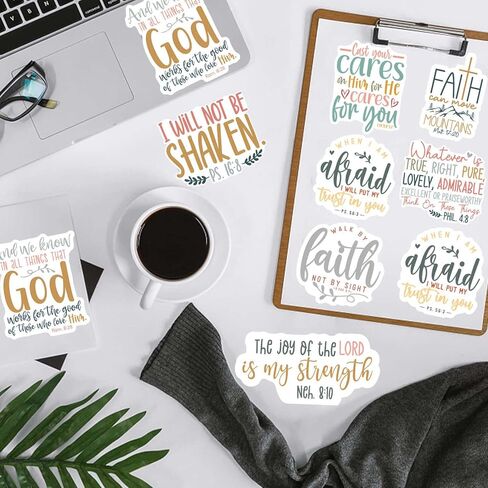 And we know
IN ALL THINGS THAT
God
works for the good
of those who love Him.
Rom. 8:28
I WILL NOT BE
SHAKEN.
PS. 16:8
Cast your
CARES
on Him for He
cares
for you
FAITH
can move
MOUNTAINS
Mat. 17:20
WHEN I AM
afraid
I WILL PUT MY
trust in you
PS. 56:3
Whatever is
TRUE, RIGHT, PURE,
LOVELY, ADMIRABLE
EXCELLENT OR PRAISEWORTHY
Think On These Things
PHIL. 4:8
WALK BY
faith
NOT BY SIGHT
WHEN I AM
afraid
I WILL PUT MY
trust in you
PS. 56:3
And we know
IN ALL THINGS THAT
God
works for the good
of those who love Him.
Rom. 8:28
The joy of the LORD
is my strength
Neh. 8:10